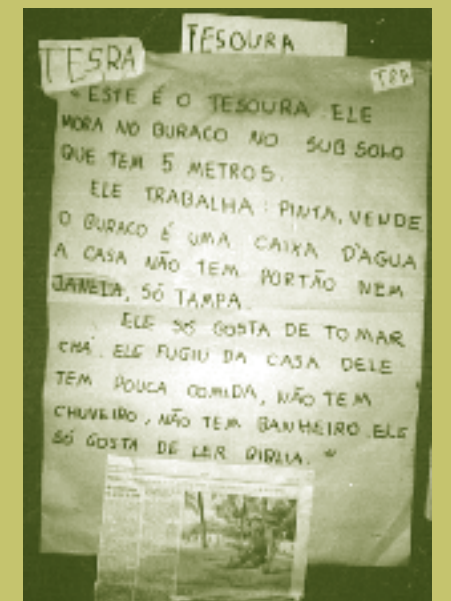 TESOURA
TESRA
TRA
"ESTE É O TESOURA. ELE
MORA NO BURACO NO SUB SOLO
QUE TEM 5 METROS.
ELE TRABALHA: PINTA, VENDE
O BURACO É UMA CAIXA D'AGUA
A CASA NÃO TEM PORTÃO NEM
JANELA, SÓ TAMPA.
ELE SÓ GOSTA DE TOMAR
CHÁ. ELE FUGIU DA CASA DELE
TEM POUCA COMIDA, NÃO TEM
CHUVEIRO, NÃO TEM BANHEIRO. ELE
SÓ GOSTA DE LER BIBLIA. "